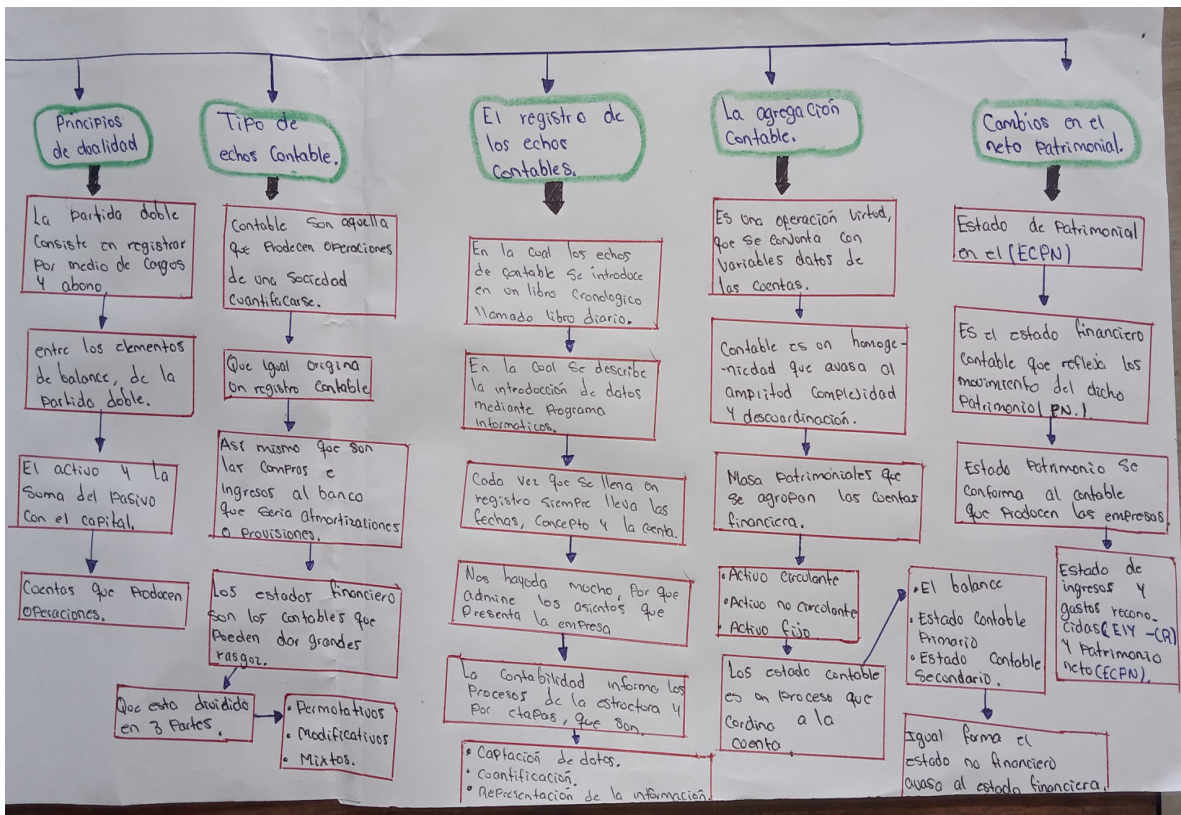 Principios
de doalidad
La partida doble
Consiste en registrar
Por medio de cargos
Y abono.
entre los elementos
de balance, de la
Partido doble.
El activo y la
Suma del pasivo
Con el capital.
Cuentas que Producen
Operaciones.
Tipo de
echos Contable.
Contable Son aquella
que Producen Operaciones
de una Sociedad
Cuantifacarse.
Que igual origina
un registro contable
Así mismo que son
las Compras e
Ingresos al banco
que seria atmortizaciones
o Provisiones.
Los estados financiero
Son los contables que
Pueden dar grandes
rasgoz.
Que esta dividido
en 3 Partes.
• Permotativos
• Modificativos
• Mixtos.
El registro de
los echos
Contables.
En la cual los echos
de contable Se introduce
en un libro Cronologico
llamado libro diario.
En la cual Se describe
la introducción de datos
mediante Programa
Informaticos.
Cada vez que se llena un
registro Siempre lleva las
fechas, Concepto y la cuenta.
Nos hayuda mucho, Por que
admine los asientos que
Presenta la empresa
La Contabilidad informa los
Procesos de la estructora y
Por etapas, que son.
• Captación de datos.
• Coantificación.
• Representación de la información.
La agregación
Contable.
Es una operación virtud,
que se conjunta con
Variables datos de
las cuentas.
Contable es un homoge-
-niedad que avasa al
amplitud Complesidad
Y descoardinación.
Masa Patrimoniales que
se agropan las cuentas
financiera.
• Activo circulante
• Activo no circulante
• Activo fijo.
Los estado contable
es un Proceso que
Cordina a la
cuenta.
• El balance
• Estado Contable
Primario
• Estado Contable
Secundario.
Igual forma el
estado no financiero
avasa al estado financiera.
Cambios en el
neto Patrimonial.
Estado de Patrimonial
en el (ECPN)
Es el estado financiero
Contable que refleja los
movimiento del dicho
Patrimonial (PN.).
Estado Patrimonio Se
Conforma al contable
que Producen las empresas.
Estado de
ingresos y
gastos recono-
cidas (EIY -CR)
Y Patrimonio
neto (ECPN).